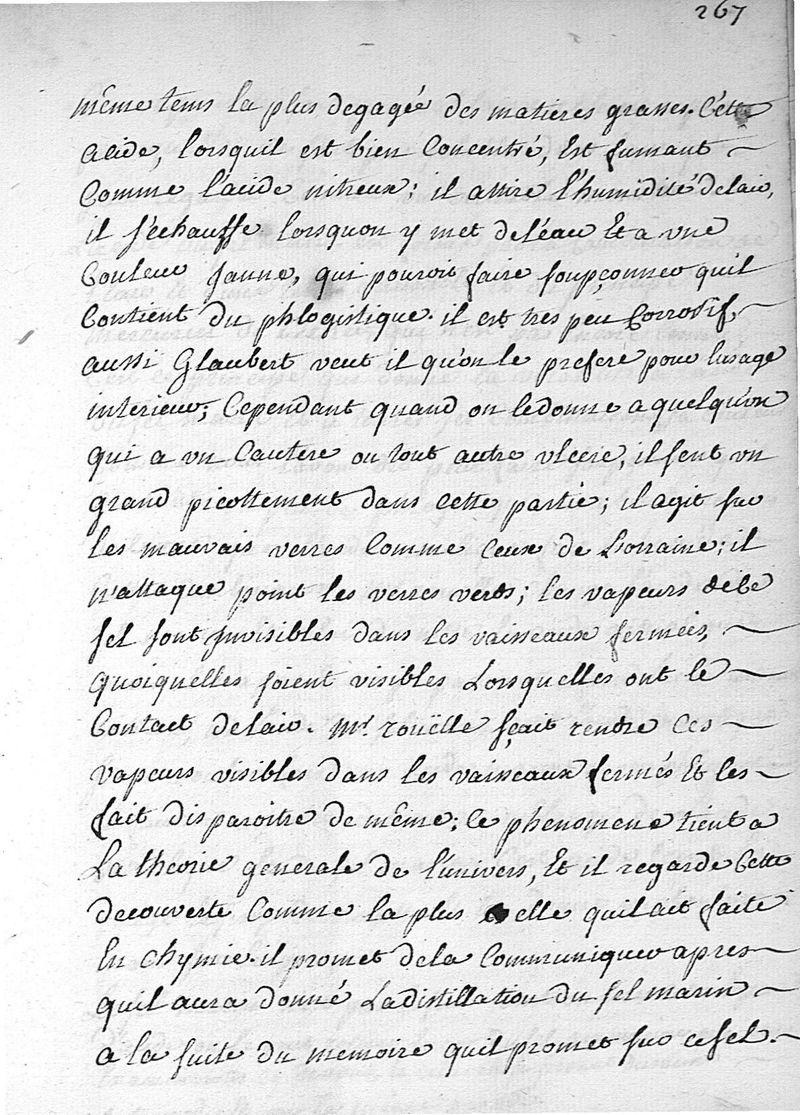 267
même tems la plus degagé des matieres grasses. Cette
acide, lorsquil est bien Concentré, Est fumant
Comme lacide nitreux; il attire l'humidité delair,
il s'échauffe lorsquon y met deléau Et a une
Couleur Jaune, qui pouroit faire soupçonner quil
Contient du phlogistique. il est tres peu Corrosif,
aussi Glaubert veut il qu'on le preferé pour lusage
interieur; Cependant quand on ledonne a quelqu'un
qui a un Cautere ou tout autre ulcere, il sent un
grand picottement dans cette partie; il agit sur
les mauvais verres Comme Ceux de Lorraine; il
n'attaque point les verres verds; les vapeurs dece
sel sont Invisibles dans les vaisseaux fermées,
quoiquelles soient visibles Lorsquelles ont le
Contact delair. Mr. rouëlle sçait rendre Ces
vapeurs visibles dans les vaisseaux fermés Et les
fait disparoitre de même; Ce phenomene tient a
La theorie generale de l'univers, Et il regarde Cette
decouverte Comme la plus elle quilait faite
En Chymie. il promet dela Communiquer apres
quil aura donné La distillation du sel marin
a la suite du memoire quil promet sur cesel.